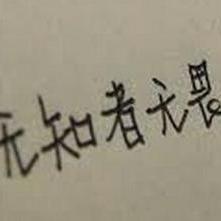 无知者无畏。